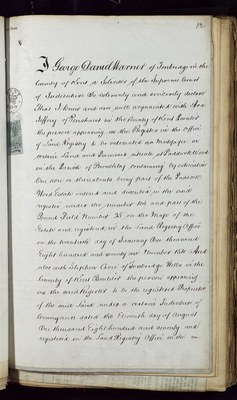 I George Daniel Warner of Tonbridge in the
County of Kent a Solicitor of the Supreme Court
of Judicature Do solemnly and sincerely declare
That I know and am well acquainted with
Jeffery of Pembury in the County of Kent
the person appearing on the Register in the Office
of Land Registry to be interested as Mortgagee in
certain Land and Premises situate at Paddock Wood
in the Parish of Brenchley containing by estimation
One acre or thereabouts being part of the Paddock
Wood Estate entered and described in the said
register under the number 206 and part of the
Pound Field Number 35 on the Map of the
Estate and registered in the Land Registry Office
on the twentieth day of January One thousand
Eight hundred and seventy one Number And
also with Stephen of Tonbridge Wells in the
County of Kent the person appearing
on the said Register to be the registered Proprietor
of the said Land under a certain Indenture of
Conveyance dated the Eleventh day of August
One thousand Eight hundred and seventy and
registered in the Land Registry Office on the